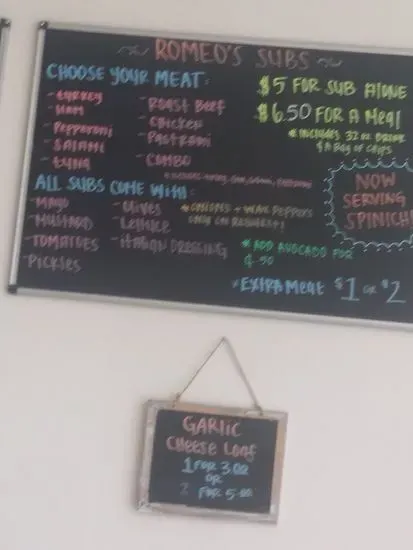 ROMEO'S SUBS
CHOOSE YOUR MEAT:
- turkey
- HAM
- Pepperoni
- SALAMI
- tuna
- ROAST BEEF
- CHICKEN
- Pastrami
- COMBO
$5 FOR SUB ALONE
$6.50 FOR A MEAL
* INCLUDES 32 oz. DRINK
& A BAG OF CHIPS
NOW
SERVING
SPINICH!
ALL SUBS COME WITH:
- MAYO
- MUSTARD
- TOMATOES
- PICKLES
- OLIVES
- Lettuce
- ITALIAN DRESSING
* ONIONS + WAX PEPPERS
ONLY ON REQUEST!
* ADD AVOCADO FOR
$.50
* EXTRA MEAT $1 OR $2
GARLIC
CHEESE LOAF
1 FOR 3.00
OR
2 FOR 5.00